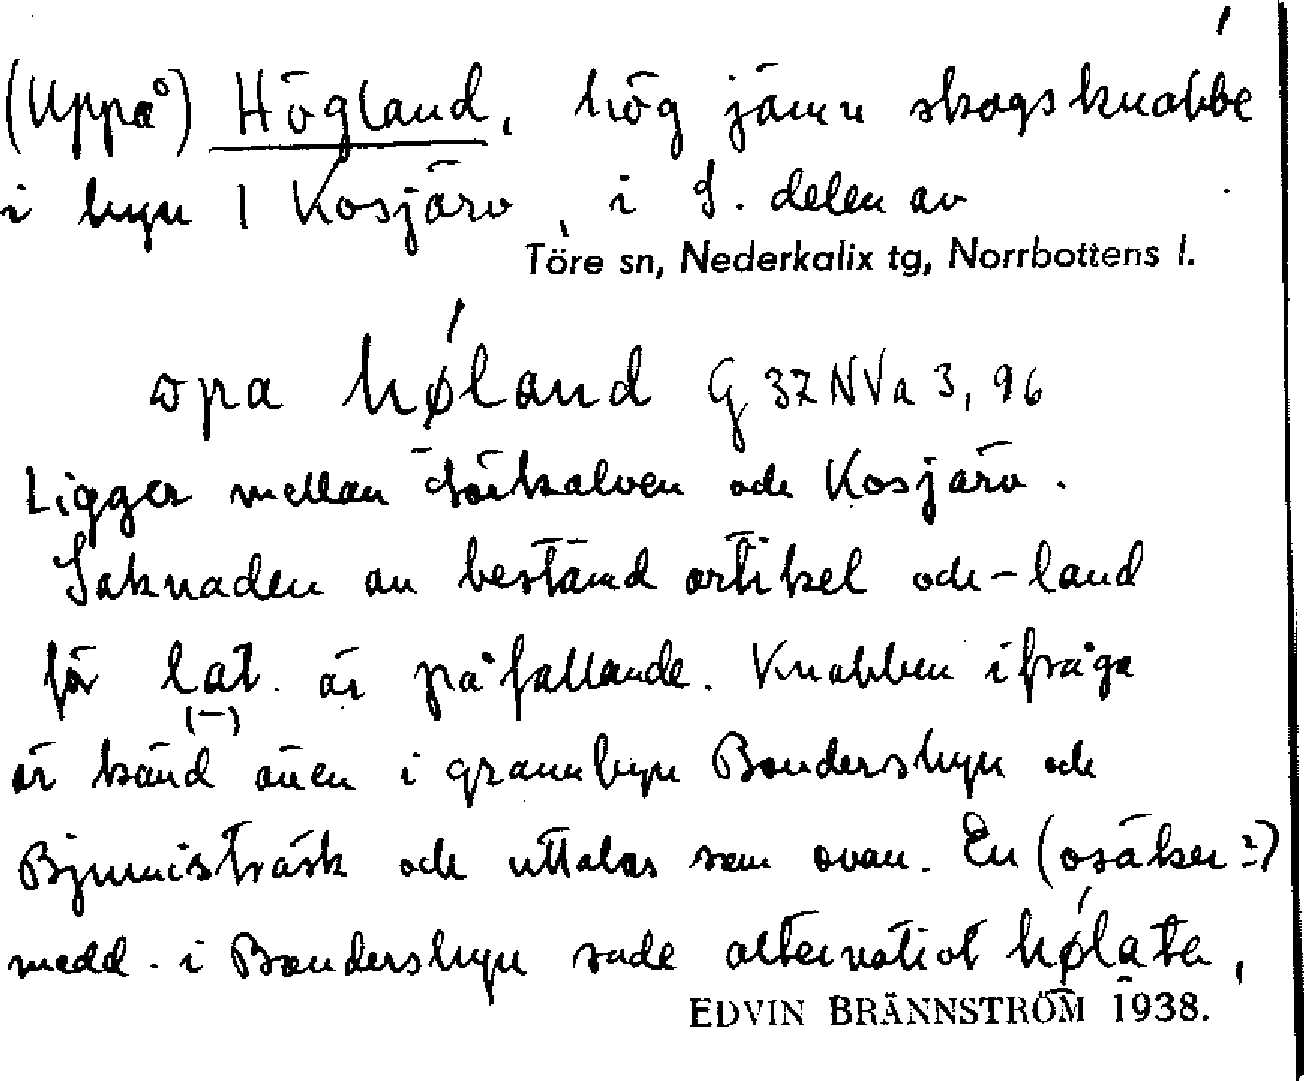 (Uppå) Högland, hög jämn skogsknabbe
i byn Kosjärv, i S. delen av
Töre sn, Nederkalix tg, Norrbottens l.
opa høland G 37 NVa 3, 96
Ligger mellan Töreälven och Kosjärv.
Saknaden av bestämd artikel och -land
för lat. är påfallande. Knabben ifråga
(-)
är känd även i grannbyn Bondersbyn och
Bjumisträsk och uttalas som ovan. En (osäker?)
medd. i Bondersbyn sade alternativt hølate,
EDVIN BRÄNNSTRÖM 1938.